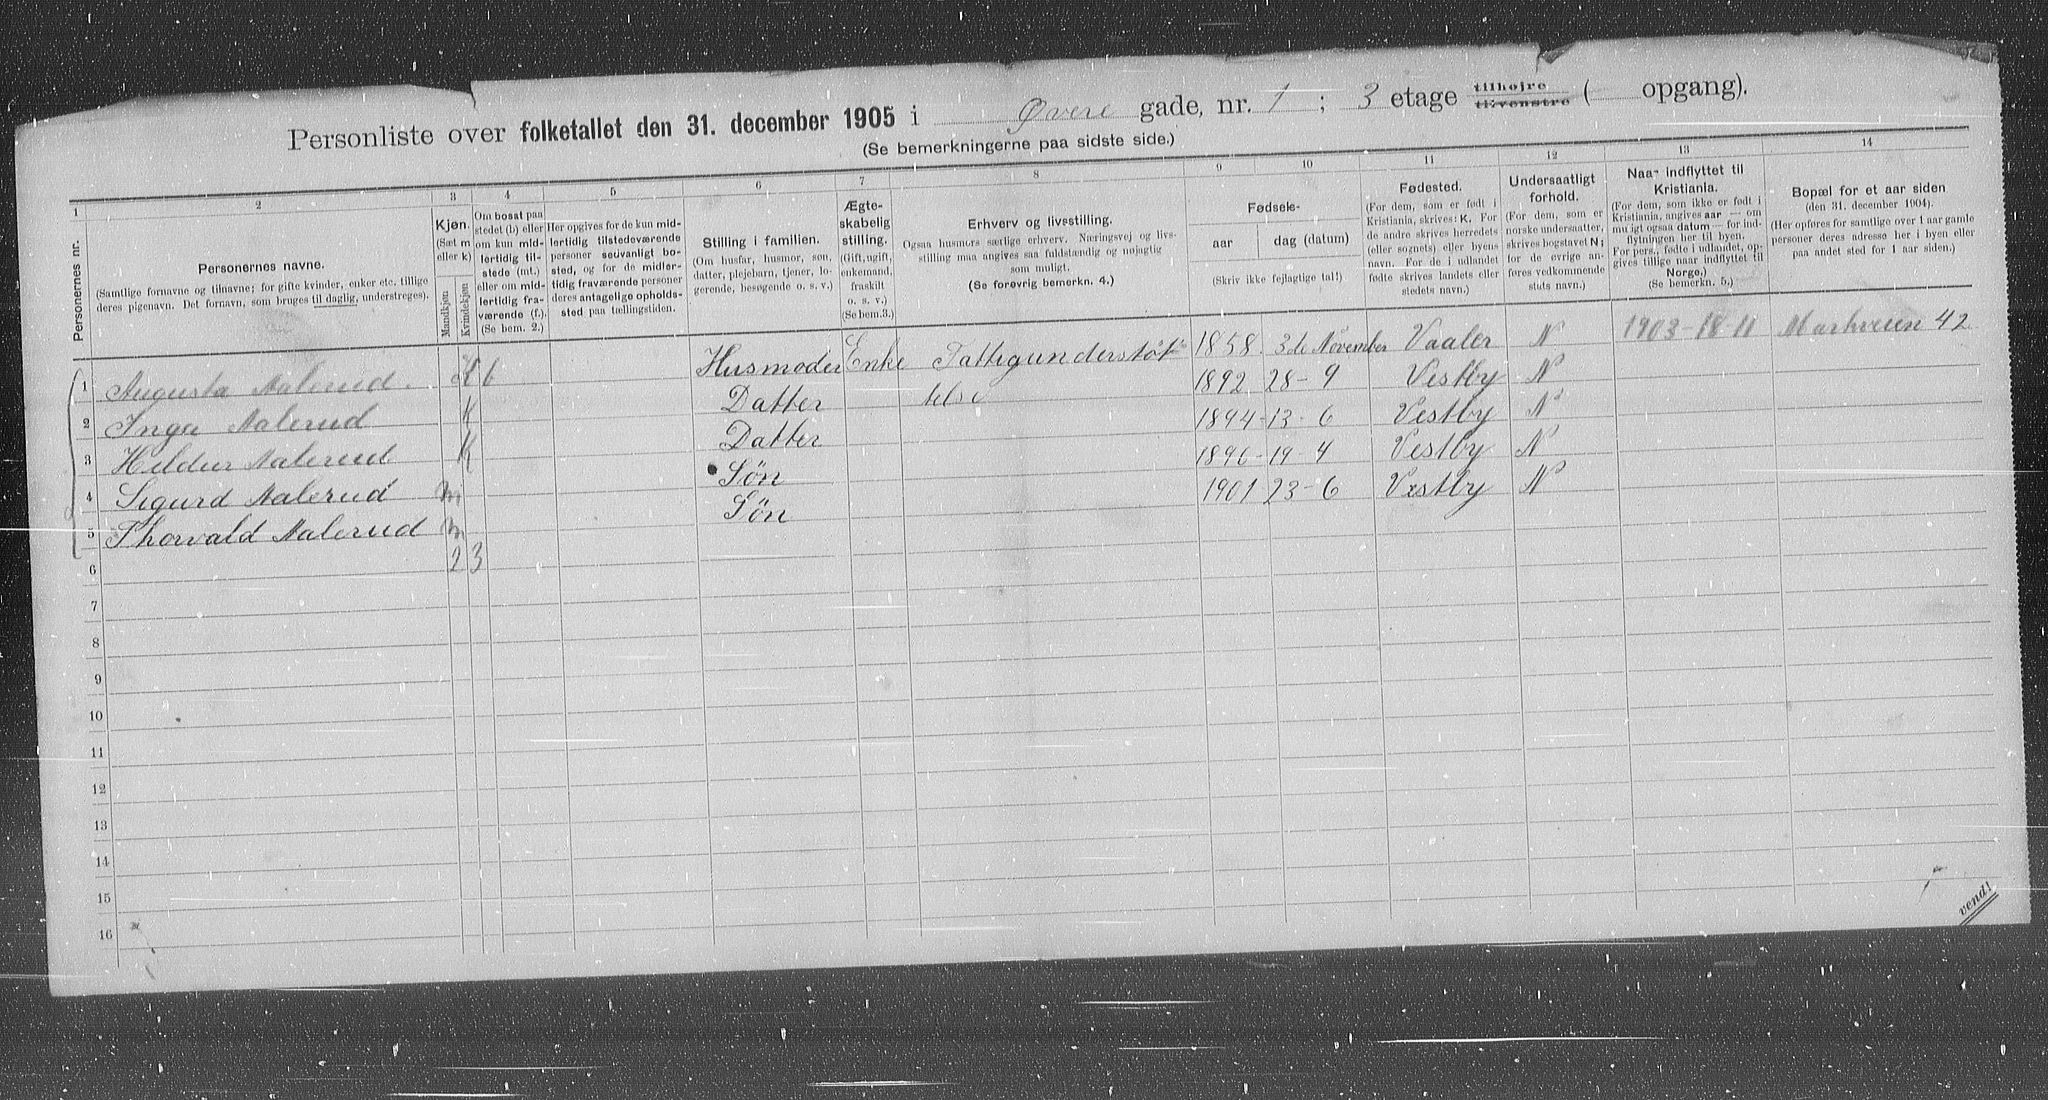 Personliste over folketallet den 31. december 1905 i Øvre gade, nr. 1 ; 3 etage tilhøjre tilvenstre ( opgang).
(Se bemerkningerne paa sidste side.)
1 2 3 4 5 6 7 8 9 10 11 12 13 14
Personernes nr.
Personernes navne.
(Samtlige fornavne og tilnavne; for gifte kvinder, enker etc. tillige
deres pigenavn. Det fornavn, som bruges til daglig, understreges).
Kjøn.
(Sæt m
eller k)
Mandkjøn
Kvindekjøn
Om bosat paa
stedet (b) eller
om kun mid-
lertidig til-
stede (mt.)
eller om mid-
lertidig fra-
værende (f.)
(Se bem. 2.)
Her opgives for de kun mid-
lertidig tilstedeværende
personer sedvanligt bo-
sted, og for de midler-
tidig fraværende personer
deres antagelige opholds-
sted paa tællingstiden.
Stilling i familien.
(Om husfar, husmor, søn,
datter, plejebarn, tjener, lo-
gerende, besøgende o. s. v.)
Ægte-
skabelig
stilling.
(Gift, ugift,
enkemand,
fraskilt
o. s. v.)
(Se bem. 3.)
Erhverv og livsstilling.
Ogsaa husmors særlige erhverv. Næringsvej og livs-
stilling maa angives saa fuldstændig og nøjagtig
som muligt.
(Se forøvrig bemerkn. 4.)
Fødsels-
aar dag (datum)
(Skriv ikke fejlagtige tal!)
Fødested.
(For dem, som er født i
Kristiania, skrives: K. For
de andre skrives herredets
(eller sognets) eller byens
navn. For de i udlandet
fødte skrives landets eller
stedets navn.)
Undersaatligt
forhold.
(For dem, som er
norske undersaatter,
skrives bogstavet N;
for de øvrige an-
føres vedkommende
stats navn.)
Naar indflyttet til
Kristiania.
(For dem, som ikke er født i
Kristiania, angives aar — om
muligt ogsaa datum — for ind-
flytningen her til byen.
For pers., fødte i udlandet, op-
gives tillige naar indflyttet til
Norge.)
(Se bemerkn. 5.)
Bopæl for et aar siden
(den 31. december 1904).
(Her opføres for samtlige over 1 aar gamle
personer deres adresse her i byen eller
paa andet sted for 1 aar siden.)
1 Augusta Aalerud. K b Husmoder Enke Fattigunderstøt= 1858 3de November Vaaler N 1903-18-11 Markveien 42
telse
2 Inga Aalerud K Datter 1892 28-9 Vestby N
3 Hildur Aalerud K Datter 1894 13-6 Vestby N
4 Sigurd Aalerud m Søn 1896 19-4 Vestby N
5 Thorvald Aalerud m Søn 1901 23-6 Vestby N
6 2 3
7
8
9
10
11
12
13
14
15
16
vend!